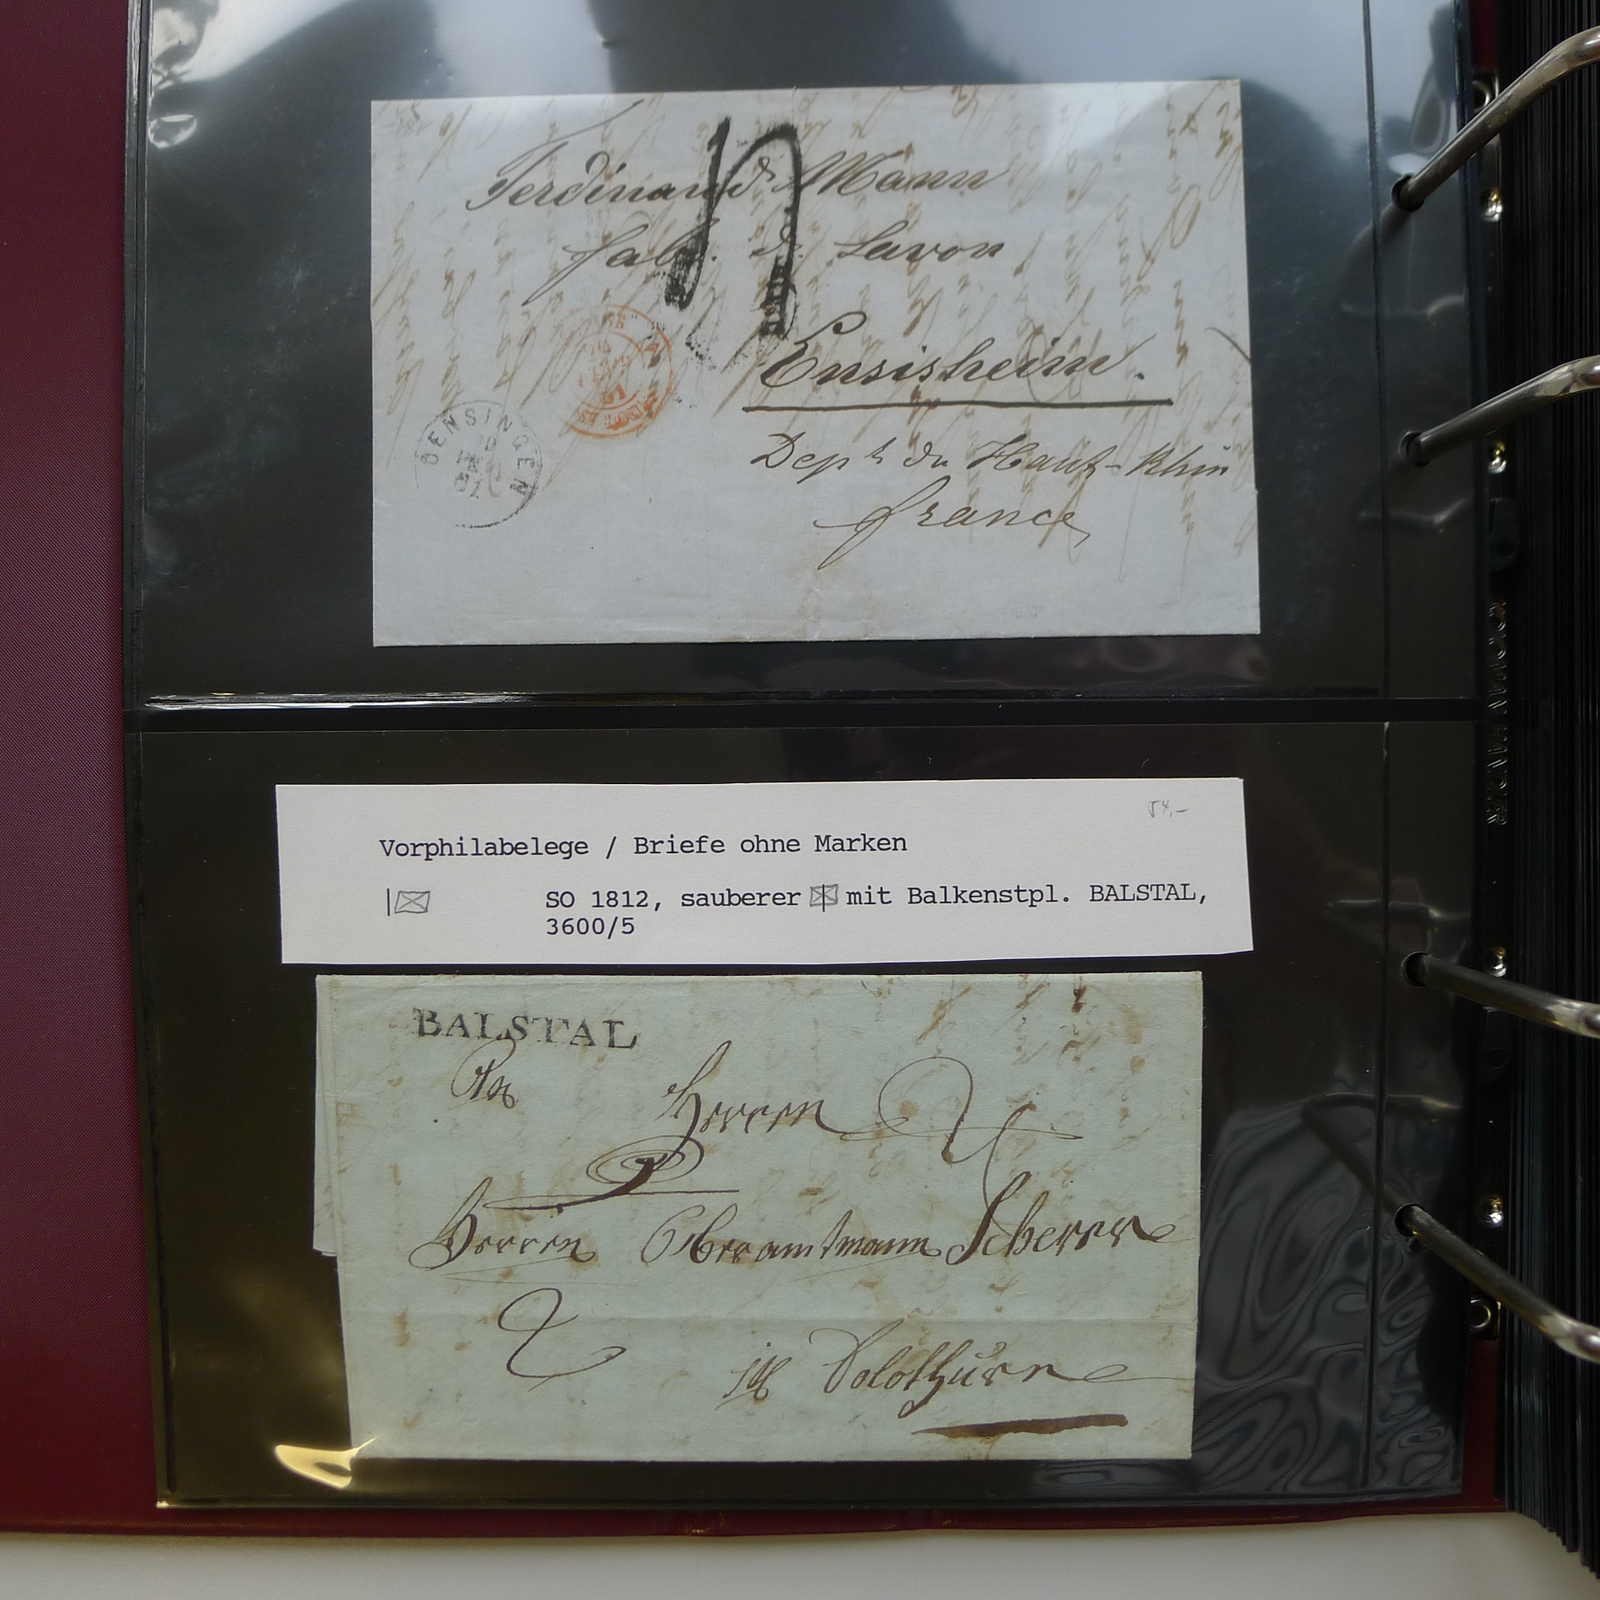 Ferdinand Mann
fab. d. Savon
Ensisheim.
Dept. du Haut-Rhin
france
OENSINGEN
54,-
Vorphilabelege / Briefe ohne Marken
SO 1812, sauberer mit Balkenstpl. BALSTAL,
3600/5
BALSTAL
An
Herrn
Herrn Oberamtmann Scherer
in Solothurn